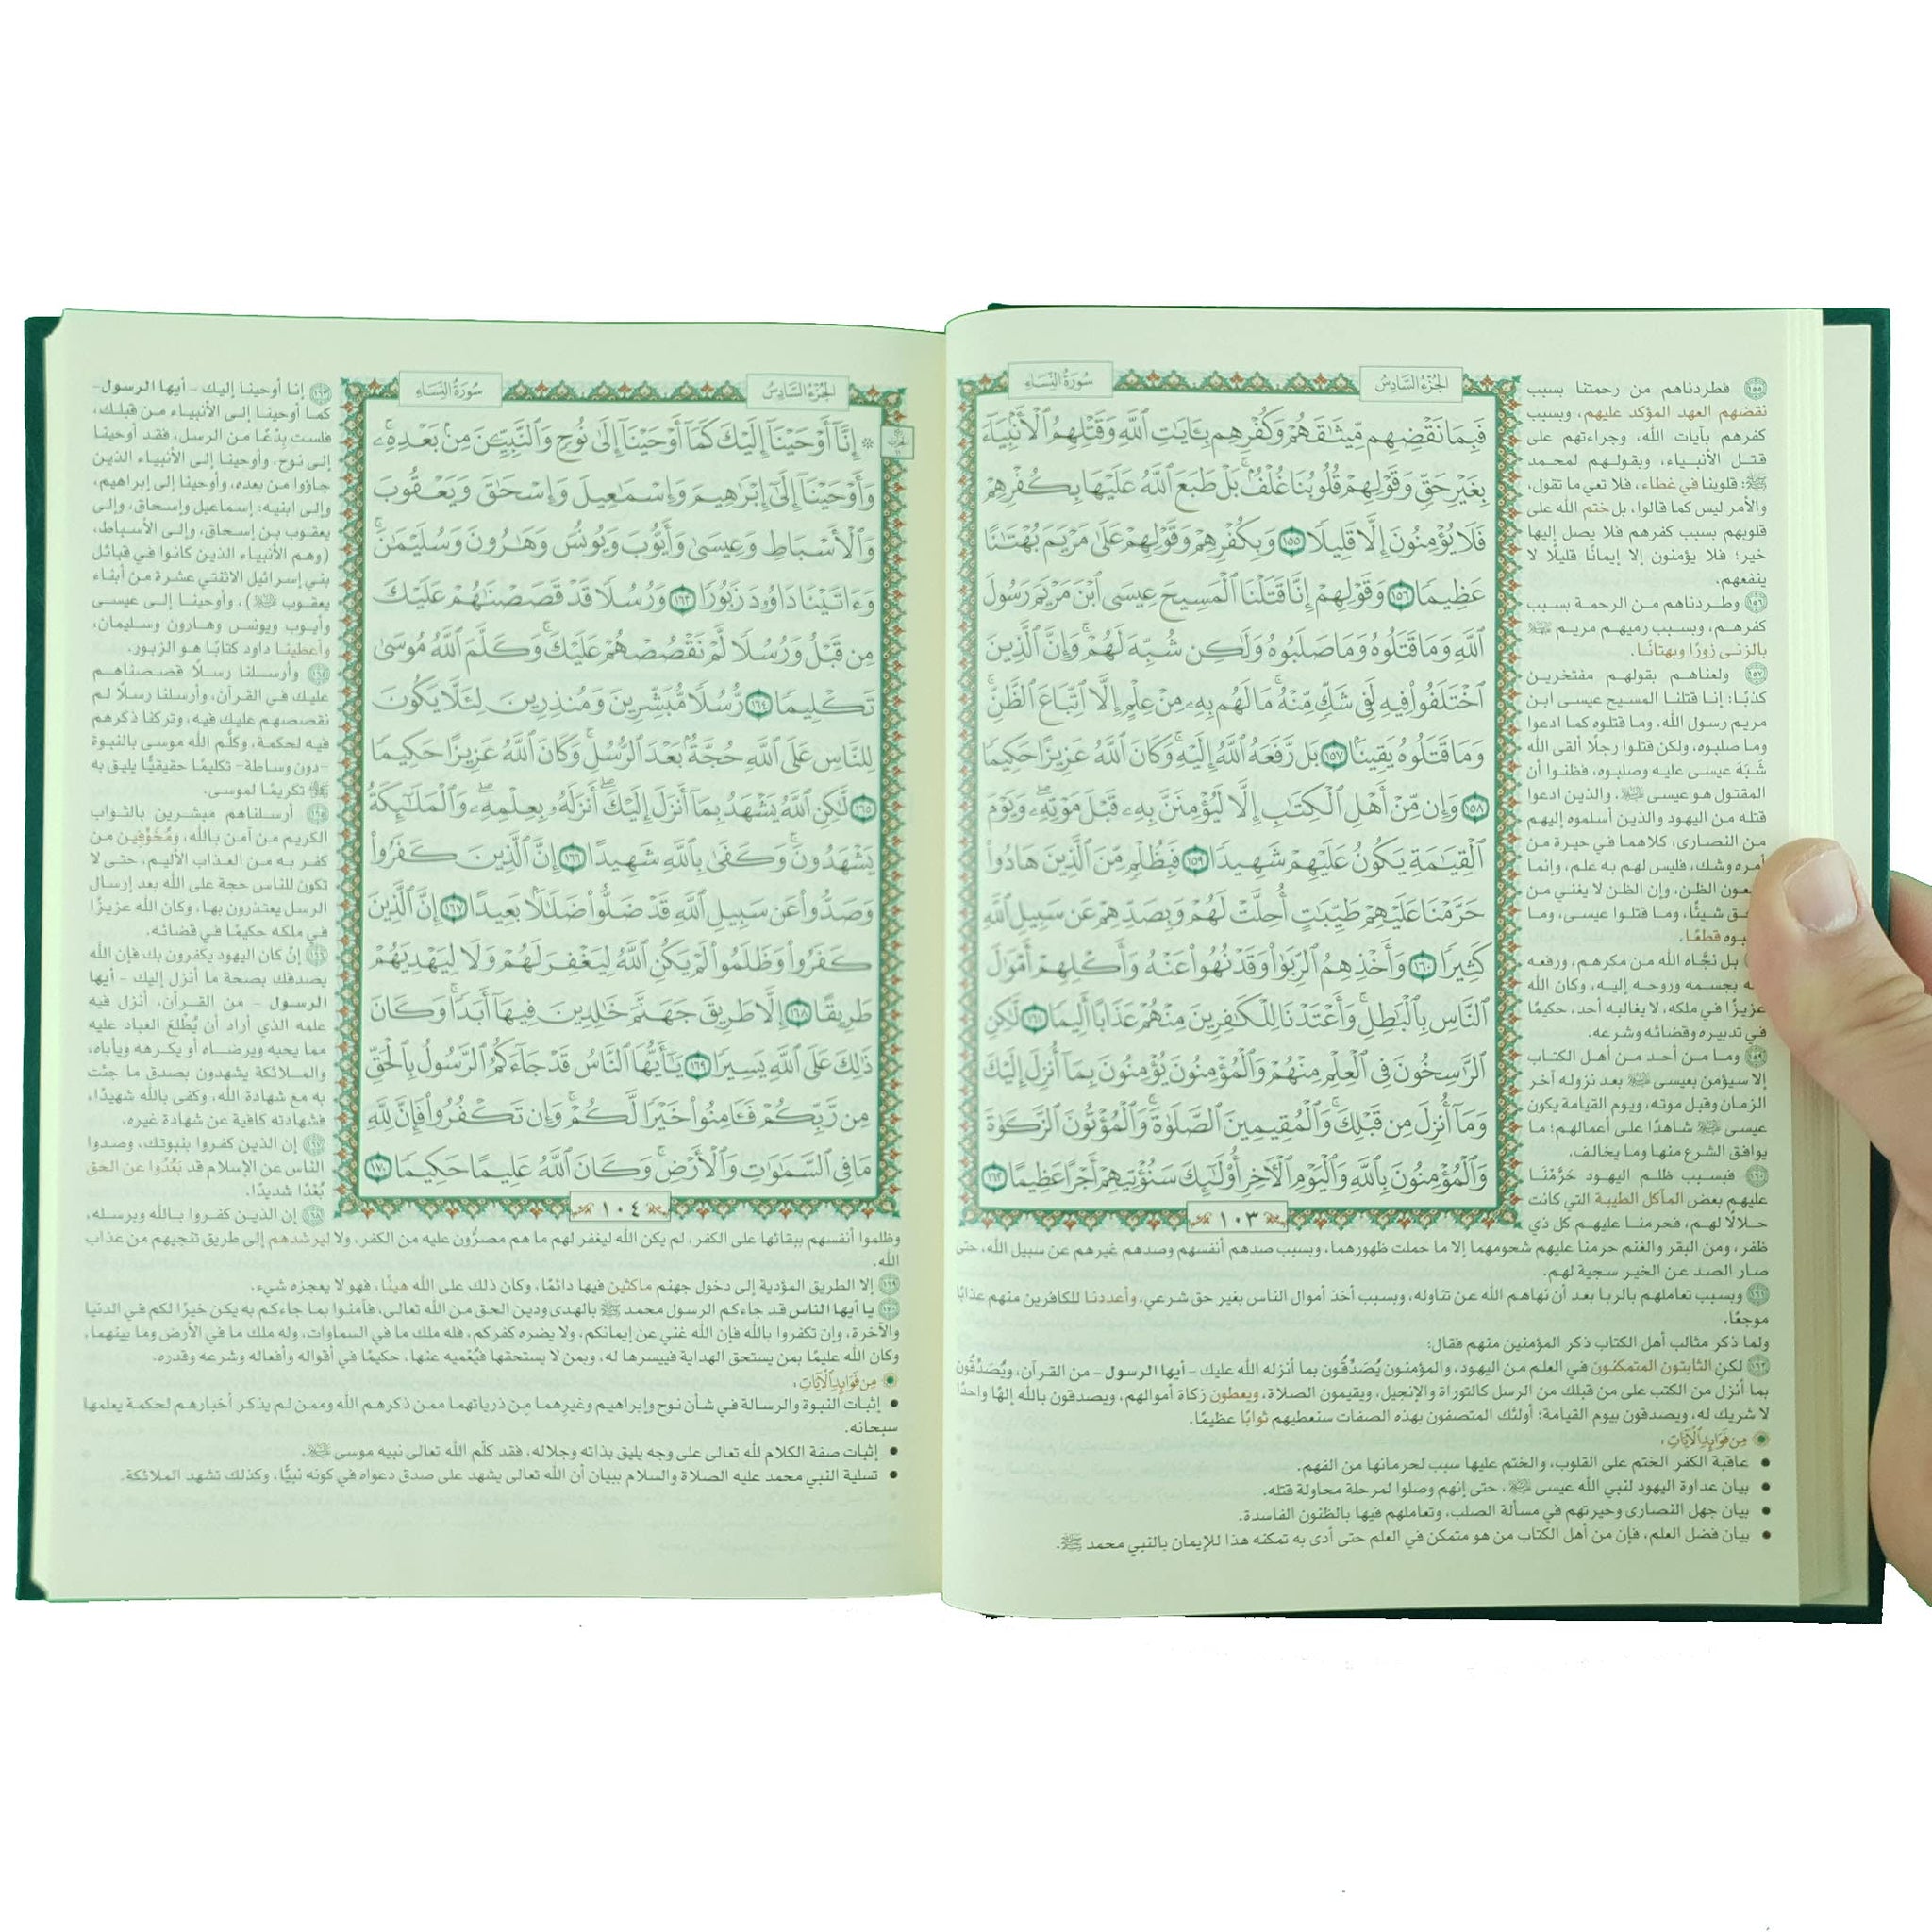 الجزء السادس
سورة النساء
فَبِمَا نَقْضِهِم مِّيثَٰقَهُمْ وَكُفْرِهِم بِـَٔايَٰتِ ٱللَّهِ وَقَتْلِهِمُ ٱلْأَنۢبِيَآءَ
بِغَيْرِ حَقٍّ وَقَوْلِهِمْ قُلُوبُنَا غُلْفٌۢ ۚ بَلْ طَبَعَ ٱللَّهُ عَلَيْهَا بِكُفْرِهِمْ
فَلَا يُؤْمِنُونَ إِلَّا قَلِيلًا ١٥٥ وَبِكُفْرِهِمْ وَقَوْلِهِمْ عَلَىٰ مَرْيَمَ بُهْتَٰنًا
عَظِيمًا ١٥٦ وَقَوْلِهِمْ إِنَّا قَتَلْنَا ٱلْمَسِيحَ عِيسَى ٱبْنَ مَرْيَمَ رَسُولَ
ٱللَّهِ وَمَا قَتَلُوهُ وَمَا صَلَبُوهُ وَلَٰكِن شُبِّهَ لَهُمْ ۚ وَإِنَّ ٱلَّذِينَ
ٱخْتَلَفُوا۟ فِيهِ لَفِى شَكٍّ مِّنْهُ ۚ مَا لَهُم بِهِۦ مِنْ عِلْمٍ إِلَّا ٱتِّبَاعَ ٱلظَّنِّ ۚ
وَمَا قَتَلُوهُ يَقِينًۢا ١٥٧ بَل رَّفَعَهُ ٱللَّهُ إِلَيْهِ ۚ وَكَانَ ٱللَّهُ عَزِيزًا حَكِيمًا
١٥٨ وَإِن مِّنْ أَهْلِ ٱلْكِتَٰبِ إِلَّا لَيُؤْمِنَنَّ بِهِۦ قَبْلَ مَوْتِهِۦ ۖ وَيَوْمَ
ٱلْقِيَٰمَةِ يَكُونُ عَلَيْهِمْ شَهِيدًا ١٥٩ فَبِظُلْمٍ مِّنَ ٱلَّذِينَ هَادُوا۟
حَرَّمْنَا عَلَيْهِمْ طَيِّبَٰتٍ أُحِلَّتْ لَهُمْ وَبِصَدِّهِمْ عَن سَبِيلِ ٱللَّهِ
كَثِيرًا ١٦٠ وَأَخْذِهِمُ ٱلرِّبَوٰا۟ وَقَدْ نُهُوا۟ عَنْهُ وَأَكْلِهِمْ أَمْوَٰلَ
ٱلنَّاسِ بِٱلْبَٰطِلِ ۚ وَأَعْتَدْنَا لِلْكَٰفِرِينَ مِنْهُمْ عَذَابًا أَلِيمًا ١٦١ لَّٰكِنِ
ٱلرَّٰسِخُونَ فِى ٱلْعِلْمِ مِنْهُمْ وَٱلْمُؤْمِنُونَ يُؤْمِنُونَ بِمَآ أُنزِلَ إِلَيْكَ
وَمَآ أُنزِلَ مِن قَبْلِكَ ۚ وَٱلْمُقِيمِينَ ٱلصَّلَوٰةَ ۚ وَٱلْمُؤْتُونَ ٱلزَّكَوٰةَ
وَٱلْمُؤْمِنُونَ بِٱللَّهِ وَٱلْيَوْمِ ٱلْـَٔاخِرِ أُو۟لَٰٓئِكَ سَنُؤْتِيهِمْ أَجْرًا عَظِيمًا ١٦٢
١٠٣
١٥٥ فطردناهم من رحمتنا بسبب
نقضهم العهد المؤكد عليهم، وبسبب
كفرهم بآيات الله، وجراءتهم على
قتل الأنبياء، وبقولهم لمحمد
ﷺ: قلوبنا في غطاء، فلا تعي ما تقول،
والأمر ليس كما قالوا، بل ختم الله على
قلوبهم بسبب كفرهم فلا يصل إليها
خير؛ فلا يؤمنون إلا إيمانًا قليلًا لا
ينفعهم.
١٥٦ وطردناهم من الرحمة بسبب
كفرهم، وبسبب رميهم مريم
بالزنى زورًا وبهتانًا.
١٥٧ ولعناهم بقولهم مفتخرين
كذبًا: إنا قتلنا المسيح عيسى ابن
مريم رسول الله، وما قتلوه كما ادعوا
وما صلبوه، ولكن قتلوا رجلًا ألقى الله
شَبَهَ عيسى عليه وصلبوه، فظنوا أن
المقتول هو عيسى، والذين ادعوا
قتله من اليهود والذين أسلموه إليهم
من النصارى، كلاهما في حيرة من
أمره وشك، فليس لهم به علم، وإنما
الظن، وإن الظن لا يغني من
شيئًا، وما قتلوا عيسى، وما
قطعًا.
بل نجَّاه الله من مكرهم، ورفعه
بجسمه وروحه إليه، وكان الله
عزيزًا في ملكه، لا يغالبه أحد، حكيمًا
في تدبيره وقضائه وشرعه.
١٥٩ وما من أحد من أهل الكتاب
إلا سيؤمن بعيسى بعد نزوله آخر
الزمان وقبل موته، ويوم القيامة يكون
عيسى شاهدًا على أعمالهم؛ ما
يوافق الشرع منها وما يخالف.
١٦٠ فبسبب ظلم اليهود حَرَّمْنَا
عليهم بعض المآكل الطيبة التي كانت
حلالًا لهم، فحرمنا عليهم كل ذي
ظفر، ومن البقر والغنم حرمنا عليهم شحومهما إلا ما حملت ظهورهما، وبسبب صدهم أنفسهم وصدهم غيرهم عن سبيل الله، حتى
صار الصد عن الخير سجية لهم.
١٦١ وبسبب تعاملهم بالربا بعد أن نهاهم الله عن تناوله، وبسبب أخذ أموال الناس بغير حق شرعي، وأعددنا للكافرين منهم عذابًا
موجعًا.
ولما ذكر مثالب أهل الكتاب ذكر المؤمنين منهم فقال:
١٦٢ لكنِ الثابتون المتمكنون في العلم من اليهود، والمؤمنون يُصَدِّقُون بما أنزله الله عليك - أيها الرسول - من القرآن، ويُصَدِّقُون
بما أنزل من الكتب على من قبلك من الرسل كالتوراة والإنجيل، ويقيمون الصلاة، ويعطون زكاة أموالهم، ويصدقون بالله إلهًا واحدًا
لا شريك له، ويصدقون بيوم القيامة؛ أولئك المتصفون بهذه الصفات سنعطيهم ثوابًا عظيمًا.
من فوائد الآيات:
• عاقبة الكفر الختم على القلوب، والختم عليها سبب لحرمانها من الفهم.
• بيان عداوة اليهود لنبي الله عيسى، حتى إنهم وصلوا لمرحلة محاولة قتله.
• بيان جهل النصارى وحيرتهم في مسألة الصلب، وتعاملهم فيها بالظنون الفاسدة.
• بيان فضل العلم، فإن من أهل الكتاب من هو متمكن في العلم حتى أدى به تمكنه هذا للإيمان بالنبي محمد ﷺ.
الجزء السادس
سورة النساء
* إِنَّآ أَوْحَيْنَآ إِلَيْكَ كَمَآ أَوْحَيْنَآ إِلَىٰ نُوحٍ وَٱلنَّبِيِّـۧنَ مِنۢ بَعْدِهِۦ ۚ
وَأَوْحَيْنَآ إِلَىٰٓ إِبْرَٰهِيمَ وَإِسْمَٰعِيلَ وَإِسْحَٰقَ وَيَعْقُوبَ
وَٱلْأَسْبَاطِ وَعِيسَىٰ وَأَيُّوبَ وَيُونُسَ وَهَٰرُونَ وَسُلَيْمَٰنَ ۚ
وَءَاتَيْنَا دَاوُۥدَ زَبُورًا ١٦٣ وَرُسُلًا قَدْ قَصَصْنَٰهُمْ عَلَيْكَ
مِن قَبْلُ وَرُسُلًا لَّمْ نَقْصُصْهُمْ عَلَيْكَ ۚ وَكَلَّمَ ٱللَّهُ مُوسَىٰ
تَكْلِيمًا ١٦٤ رُّسُلًا مُّبَشِّرِينَ وَمُنذِرِينَ لِئَلَّا يَكُونَ
لِلنَّاسِ عَلَى ٱللَّهِ حُجَّةٌۢ بَعْدَ ٱلرُّسُلِ ۚ وَكَانَ ٱللَّهُ عَزِيزًا حَكِيمًا
١٦٥ لَّٰكِنِ ٱللَّهُ يَشْهَدُ بِمَآ أَنزَلَ إِلَيْكَ ۖ أَنزَلَهُۥ بِعِلْمِهِۦ ۖ وَٱلْمَلَٰٓئِكَةُ
يَشْهَدُونَ ۚ وَكَفَىٰ بِٱللَّهِ شَهِيدًا ١٦٦ إِنَّ ٱلَّذِينَ كَفَرُوا۟
وَصَدُّوا۟ عَن سَبِيلِ ٱللَّهِ قَدْ ضَلُّوا۟ ضَلَٰلًۢا بَعِيدًا ١٦٧ إِنَّ ٱلَّذِينَ
كَفَرُوا۟ وَظَلَمُوا۟ لَمْ يَكُنِ ٱللَّهُ لِيَغْفِرَ لَهُمْ وَلَا لِيَهْدِيَهُمْ
طَرِيقًا ١٦٨ إِلَّا طَرِيقَ جَهَنَّمَ خَٰلِدِينَ فِيهَآ أَبَدًا ۚ وَكَانَ
ذَٰلِكَ عَلَى ٱللَّهِ يَسِيرًا ١٦٩ يَٰٓأَيُّهَا ٱلنَّاسُ قَدْ جَآءَكُمُ ٱلرَّسُولُ بِٱلْحَقِّ
مِن رَّبِّكُمْ فَـَٔامِنُوا۟ خَيْرًا لَّكُمْ ۚ وَإِن تَكْفُرُوا۟ فَإِنَّ لِلَّهِ
مَا فِى ٱلسَّمَٰوَٰتِ وَٱلْأَرْضِ ۚ وَكَانَ ٱللَّهُ عَلِيمًا حَكِيمًا ١٧٠
١٠٤
١٦٣ إنا أوحينا إليك - أيها الرسول-
كما أوحينا إلى الأنبياء من قبلك،
فلست بِدْعًا من الرسل، فقد أوحينا
إلى نوح، وأوحينا إلى الأنبياء الذين
جاؤوا من بعده، وأوحينا إلى إبراهيم،
وإلى ابنيه: إسماعيل وإسحاق، وإلى
يعقوب بن إسحاق، وإلى الأسباط،
(وهم الأنبياء الذين كانوا في قبائل
بني إسرائيل الاثنتي عشرة من أبناء
يعقوب)، وأوحينا إلى عيسى
وأيوب ويونس وهارون وسليمان،
وأعطينا داود كتابًا هو الزبور.
١٦٤ وأرسلنا رسلًا قصصناهم
عليك في القرآن، وأرسلنا رسلًا لم
نقصصهم عليك فيه، وتركنا ذكرهم
فيه لحكمة، وكلَّم الله موسى بالنبوة
-دون وساطة- تكليمًا حقيقيًّا يليق به
تكريمًا لموسى.
١٦٥ أرسلناهم مبشرين بالثواب
الكريم من آمن بالله، ومُخَوِّفِين من
كفر به من العذاب الأليم، حتى لا
تكون للناس حجة على الله بعد إرسال
الرسل يعتذرون بها، وكان الله عزيزًا
في ملكه حكيمًا في قضائه.
١٦٦ إنْ كان اليهود يكفرون بك فإن الله
يصدقك بصحة ما أنزل إليك - أيها
الرسول - من القرآن، أنزل فيه
علمه الذي أراد أن يُطْلِعَ العباد عليه
مما يحبه ويرضاه أو يكرهه ويأباه،
والملائكة يشهدون بصدق ما جئت
به مع شهادة الله، وكفى بالله شهيدًا،
فشهادته كافية عن شهادة غيره.
١٦٧ إن الذين كفروا بنبوتك، وصدوا
الناس عن الإسلام قد بَعُدُوا عن الحق
بُعْدًا شديدًا.
١٦٨ إن الذين كفروا بالله وبرسله،
وظلموا أنفسهم ببقائها على الكفر، لم يكن الله ليغفر لهم ما هم مصرُّون عليه من الكفر، ولا ليرشدهم إلى طريق تنجيهم من عذاب
الله.
١٦٩ إلا الطريق المؤدية إلى دخول جهنم ماكثين فيها دائمًا، وكان ذلك على الله هينًا، فهو لا يعجزه شيء.
١٧٠ يا أيها الناس قد جاءكم الرسول محمد ﷺ بالهدى ودين الحق من الله تعالى، فآمنوا بما جاءكم به يكن خيرًا لكم في الدنيا
والآخرة، وإن تكفروا بالله فإن الله غني عن إيمانكم، ولا يضره كفركم، فله ملك ما في السماوات، وله ملك ما في الأرض وما بينهما،
وكان الله عليمًا بمن يستحق الهداية فييسرها له، وبمن لا يستحقها فيُعْميه عنها، حكيمًا في أقواله وأفعاله وشرعه وقدره.
من فوائد الآيات:
• إثبات النبوة والرسالة في شأن نوح وإبراهيم وغيرهما مِن ذرياتهما ممن ذكرهم الله وممن لم يذكر أخبارهم لحكمة يعلمها
سبحانه.
• إثبات صفة الكلام لله تعالى على وجه يليق بذاته وجلاله، فقد كلّم الله تعالى نبيه موسى.
• تسلية النبي محمد عليه الصلاة والسلام ببيان أن الله تعالى يشهد على صدق دعواه في كونه نبيًّا، وكذلك تشهد الملائكة.